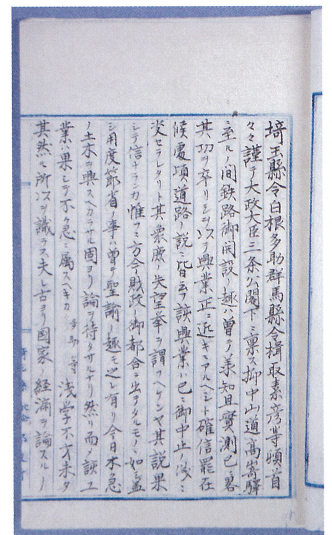 埼玉縣令白根多助群馬縣令楫取素彦等頓首
々々謹テ大政大臣三条公閣下ニ稟ス抑中山道高嵜驛
ニ至ルノ間鉄路御開設ノ趣ハ曽テ承知且實測已ニ畧
其功ヲ卒リシヲ以テ興業正ニ近キニアルヘシト確信罷在
候處頃道路ノ説ニ皆云フ該興業ハ已ニ御中止ノ議ニ
決セラレタリト其衆庶ノ失望挙テ謂フヘケンヤ其説果
シテ信ナランカ惟フニ方今財政ノ御都合ニ出ヅタルモノヽ如シ蓋
シ用度節省ノ事ハ曽テ聖諭ノ趣モ之レ有リ今日不急
ノ土木ヲ興スヘカラサル固ヨリ論ヲ待タサルナリ然リ而メ該工
業ハ果シテ不急ニ属スヘキカ多助等浅学不才未タ
其然ル所以ヲ識ラス夫レ古ヨリ國家ノ経済ヲ論スルノ